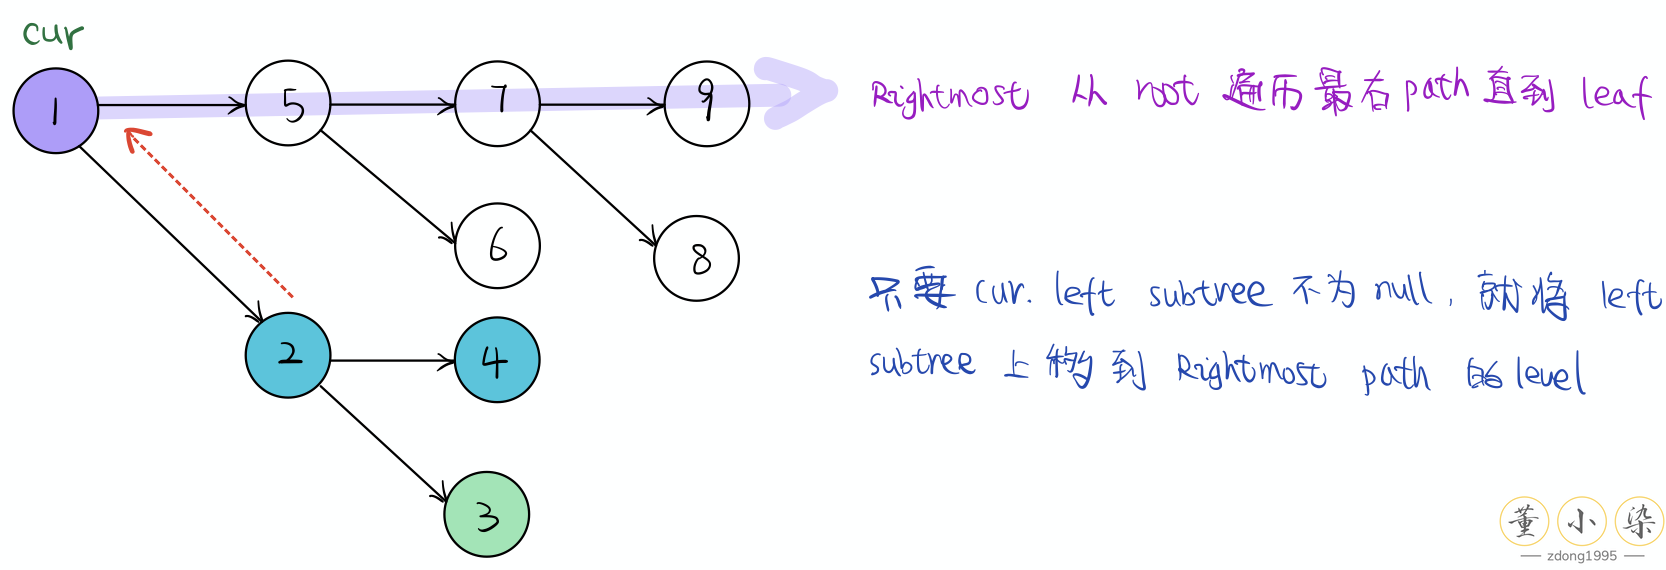 cur
1
5
7
9
Rightmost 从 root 遍历最右path直到 leaf
6
8
只要 cur. left subtree 不为 null, 就将 left
2
4
subtree 上移到 Rightmost path 的level
3
董小染
zdong1995